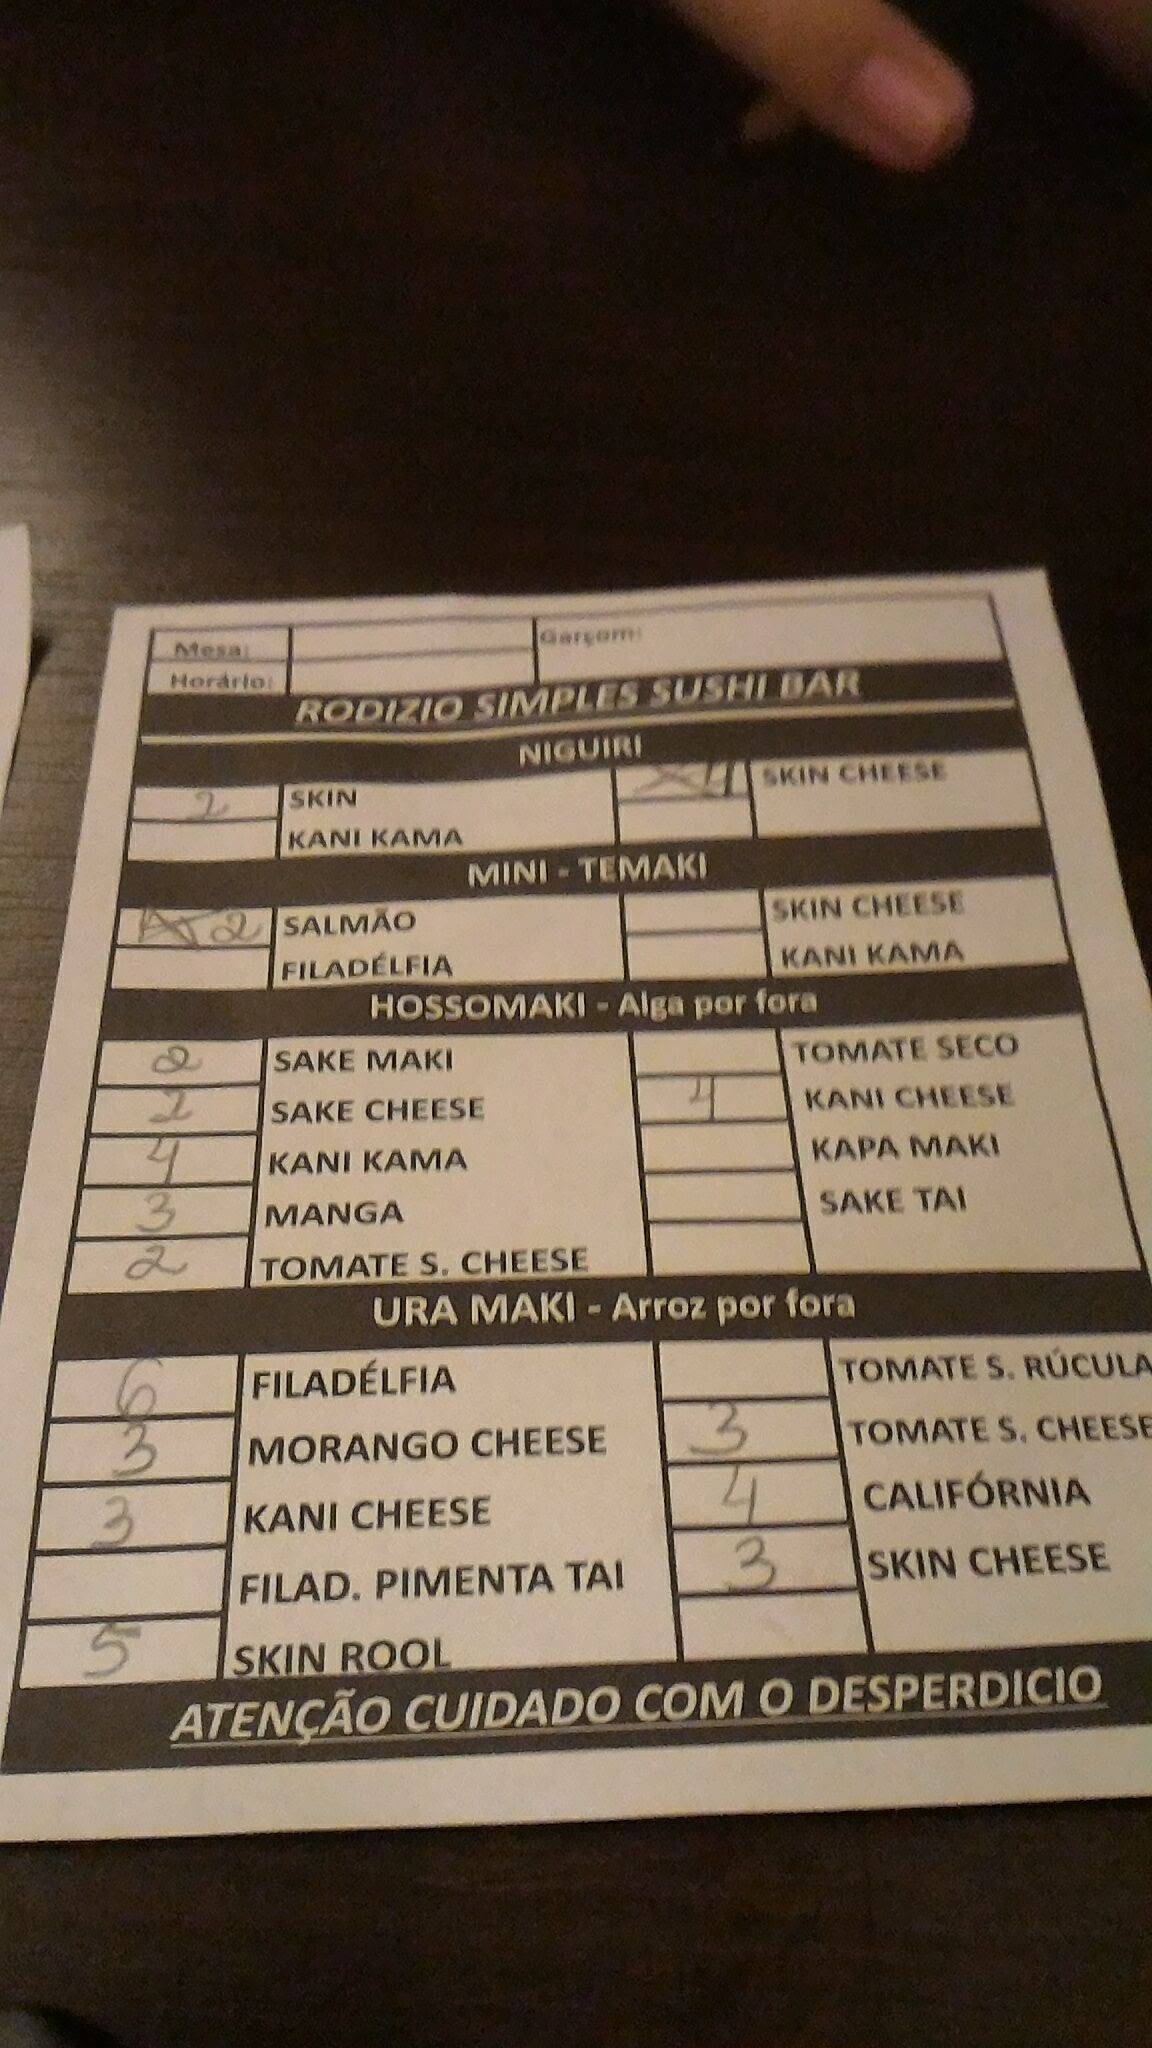 Mesa: Garçom:
Horário:
RODIZIO SIMPLES SUSHI BAR
NIGUIRI
2 SKIN 4 SKIN CHEESE
KANI KAMA
MINI - TEMAKI
2 SALMÃO SKIN CHEESE
FILADÉLFIA KANI KAMA
HOSSOMAKI - Alga por fora
2 SAKE MAKI TOMATE SECO
2 SAKE CHEESE 4 KANI CHEESE
4 KANI KAMA KAPA MAKI
3 MANGA SAKE TAI
2 TOMATE S. CHEESE
URA MAKI - Arroz por fora
6 FILADÉLFIA TOMATE S. RÚCULA
3 MORANGO CHEESE 3 TOMATE S. CHEESE
3 KANI CHEESE 4 CALIFÓRNIA
FILAD. PIMENTA TAI 3 SKIN CHEESE
5 SKIN ROOL
ATENÇÃO CUIDADO COM O DESPERDICIO